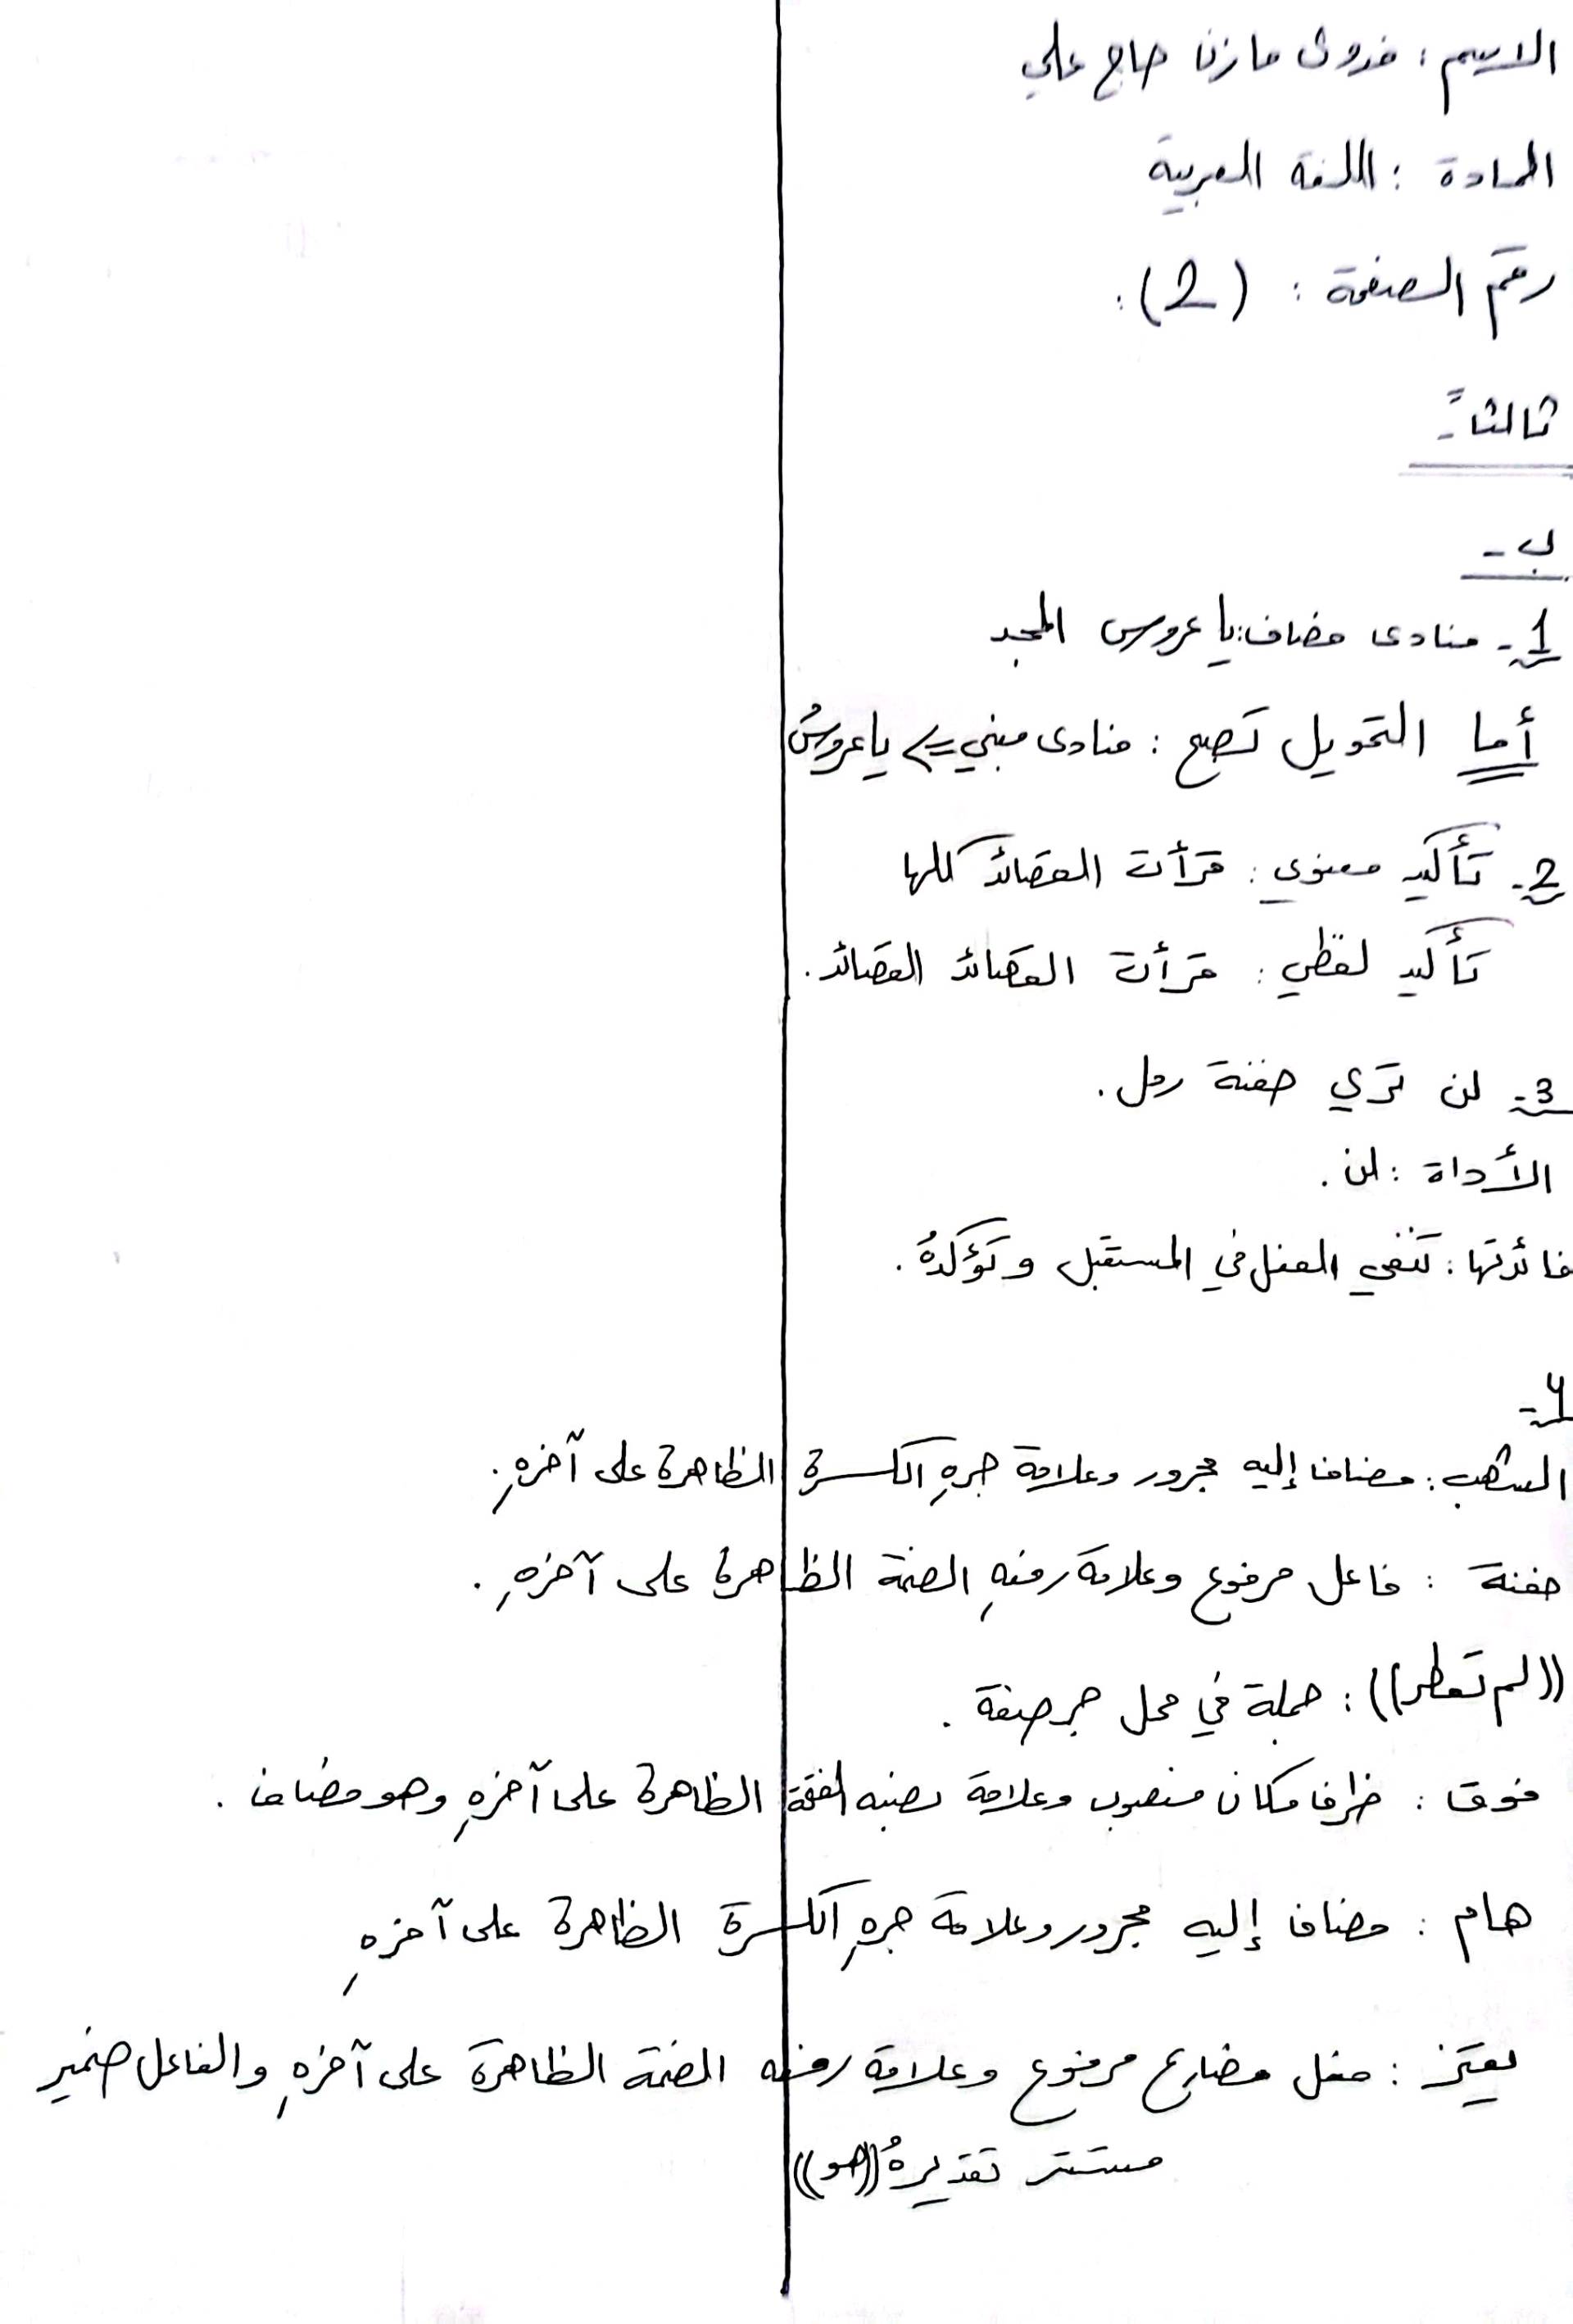 الاسم : فدوى مازن حاج علي
المادة : اللغة العربية
رقم الصفحة : (2) :
ثالثاً -
ب -
1- منادى مضاف: يا عروس المجد
أما التحويل تصبح : منادى مبني <= يا عروسُ
2- تأكيد معنوي : قرأت القصائد كلها
تأكيد لفظي : قرأت القصائد القصائد .
3- لن تري حفنة رمل .
الأداة : لن .
فائدتها : تنفي الفعل في المستقبل و تؤكدهُ .
4-
الشهب : مضاف إليه مجرور وعلامة جرهِ الكسرة الظاهرة على آخرهِ .
حفنة : فاعل مرفوع وعلامة رفعهِ الضمة الظاهرة على آخرهِ .
((لم تعطر)) : جملة في محل جر صفة .
فوق : ظرف مكان منصوب وعلامة نصبه الفتحة الظاهرة على آخرهِ وهو مضاف .
هام : مضاف إليه مجرور وعلامة جرهِ الكسرة الظاهرة على آخرهِ
يعتز : فعل مضارع مرفوع وعلامة رفعه الضمة الظاهرة على آخرهِ والفاعل ضمير
مستتر تقديرهُ ((هو))